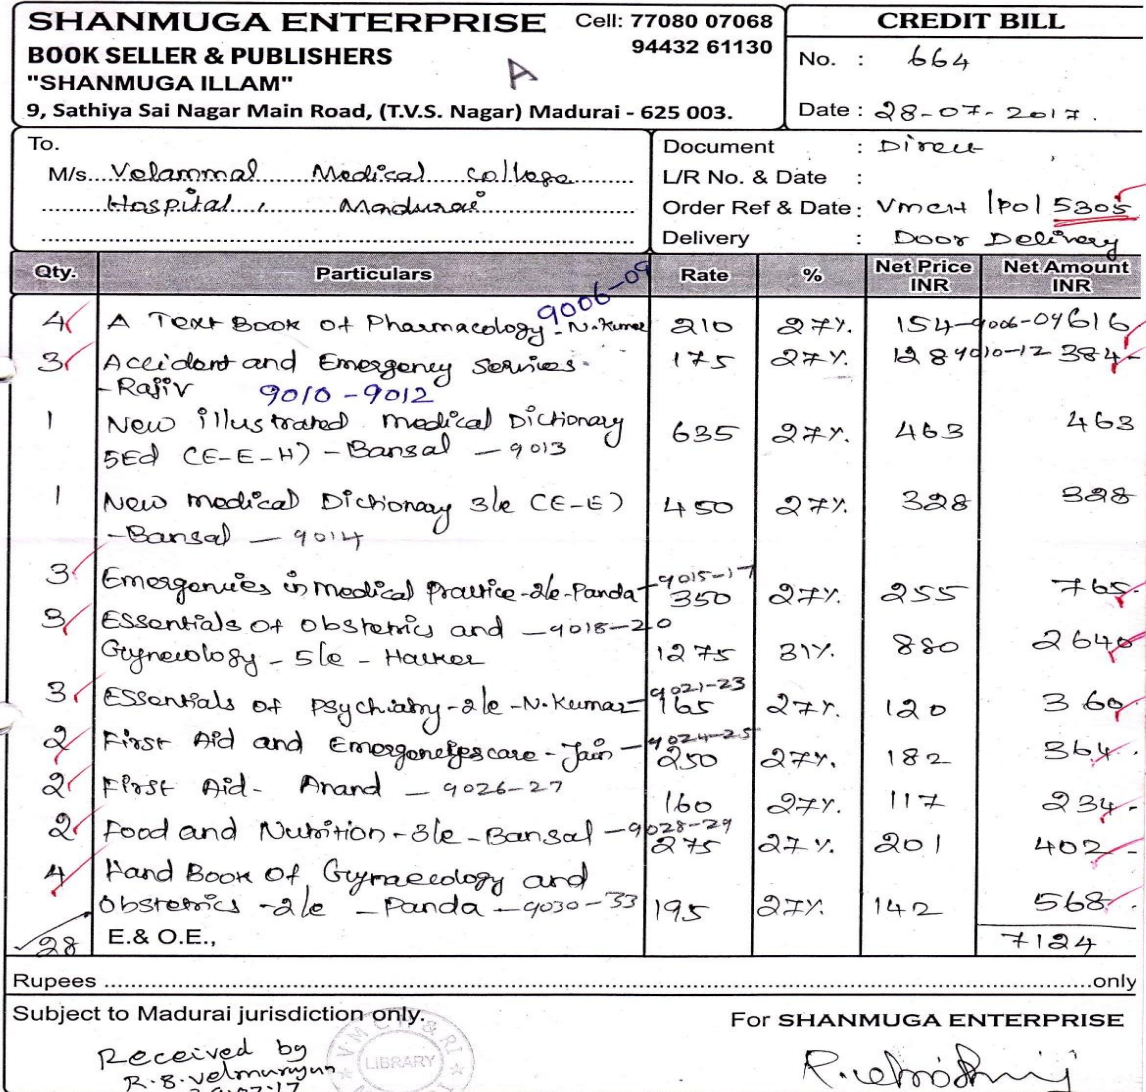 SHANMUGA ENTERPRISE Cell: 77080 07068
BOOK SELLER & PUBLISHERS 94432 61130
"SHANMUGA ILLAM" A
9, Sathiya Sai Nagar Main Road, (T.V.S. Nagar) Madurai - 625 003.
CREDIT BILL
No. : 664
Date : 28-07-2017.
To.
M/s...Velammal Medical College
Hospital, Madurai
Document : Direct
L/R No. & Date :
Order Ref & Date: VMCH |PO| 5305
Delivery : Door Delivery
Qty. Particulars Rate % Net Price INR Net Amount INR
9006-09
4 A Text Book of Pharmacology - N.Kumar 210 27%. 154-9006-09 616
3 Accident and Emergency Services - 175 27%. 128 9010-12 384
-Rajiv 9010-9012
1 New illustrated medical Dictionary 635 27%. 463 463
5Ed (E-E-H) - Bansal - 9013
1 New medical Dictionary 3/e (E-E) 450 27%. 328 328
-Bansal - 9014
3 Emergencies in medical practice-2/e-Panda - 9015-17 350 27%. 255 765
3 Essentials of obstetrics and - 9018-20
Gynecology - 5/e - 1275 31%. 880 2640
3 Essentials of psychiatry-2/e-N.Kumar - 9021-23 165 27%. 120 360
2 First Aid and Emergencyescare - Jain - 9024-25 250 27%. 182 364
2 First Aid - Anand - 9026-27 160 27%. 117 234
2 Food and Nutrition-3/e-Bansal - 9028-29 275 27%. 201 402
4 Hand Book of Gynaecology and
obstetrics -2/e - Panda - 9030-33 195 27%. 142 568
28 E.& O.E., 7124
Rupees only
Subject to Madurai jurisdiction only.
For SHANMUGA ENTERPRISE
Received by
R.B.Velmurugan
LIBRARY